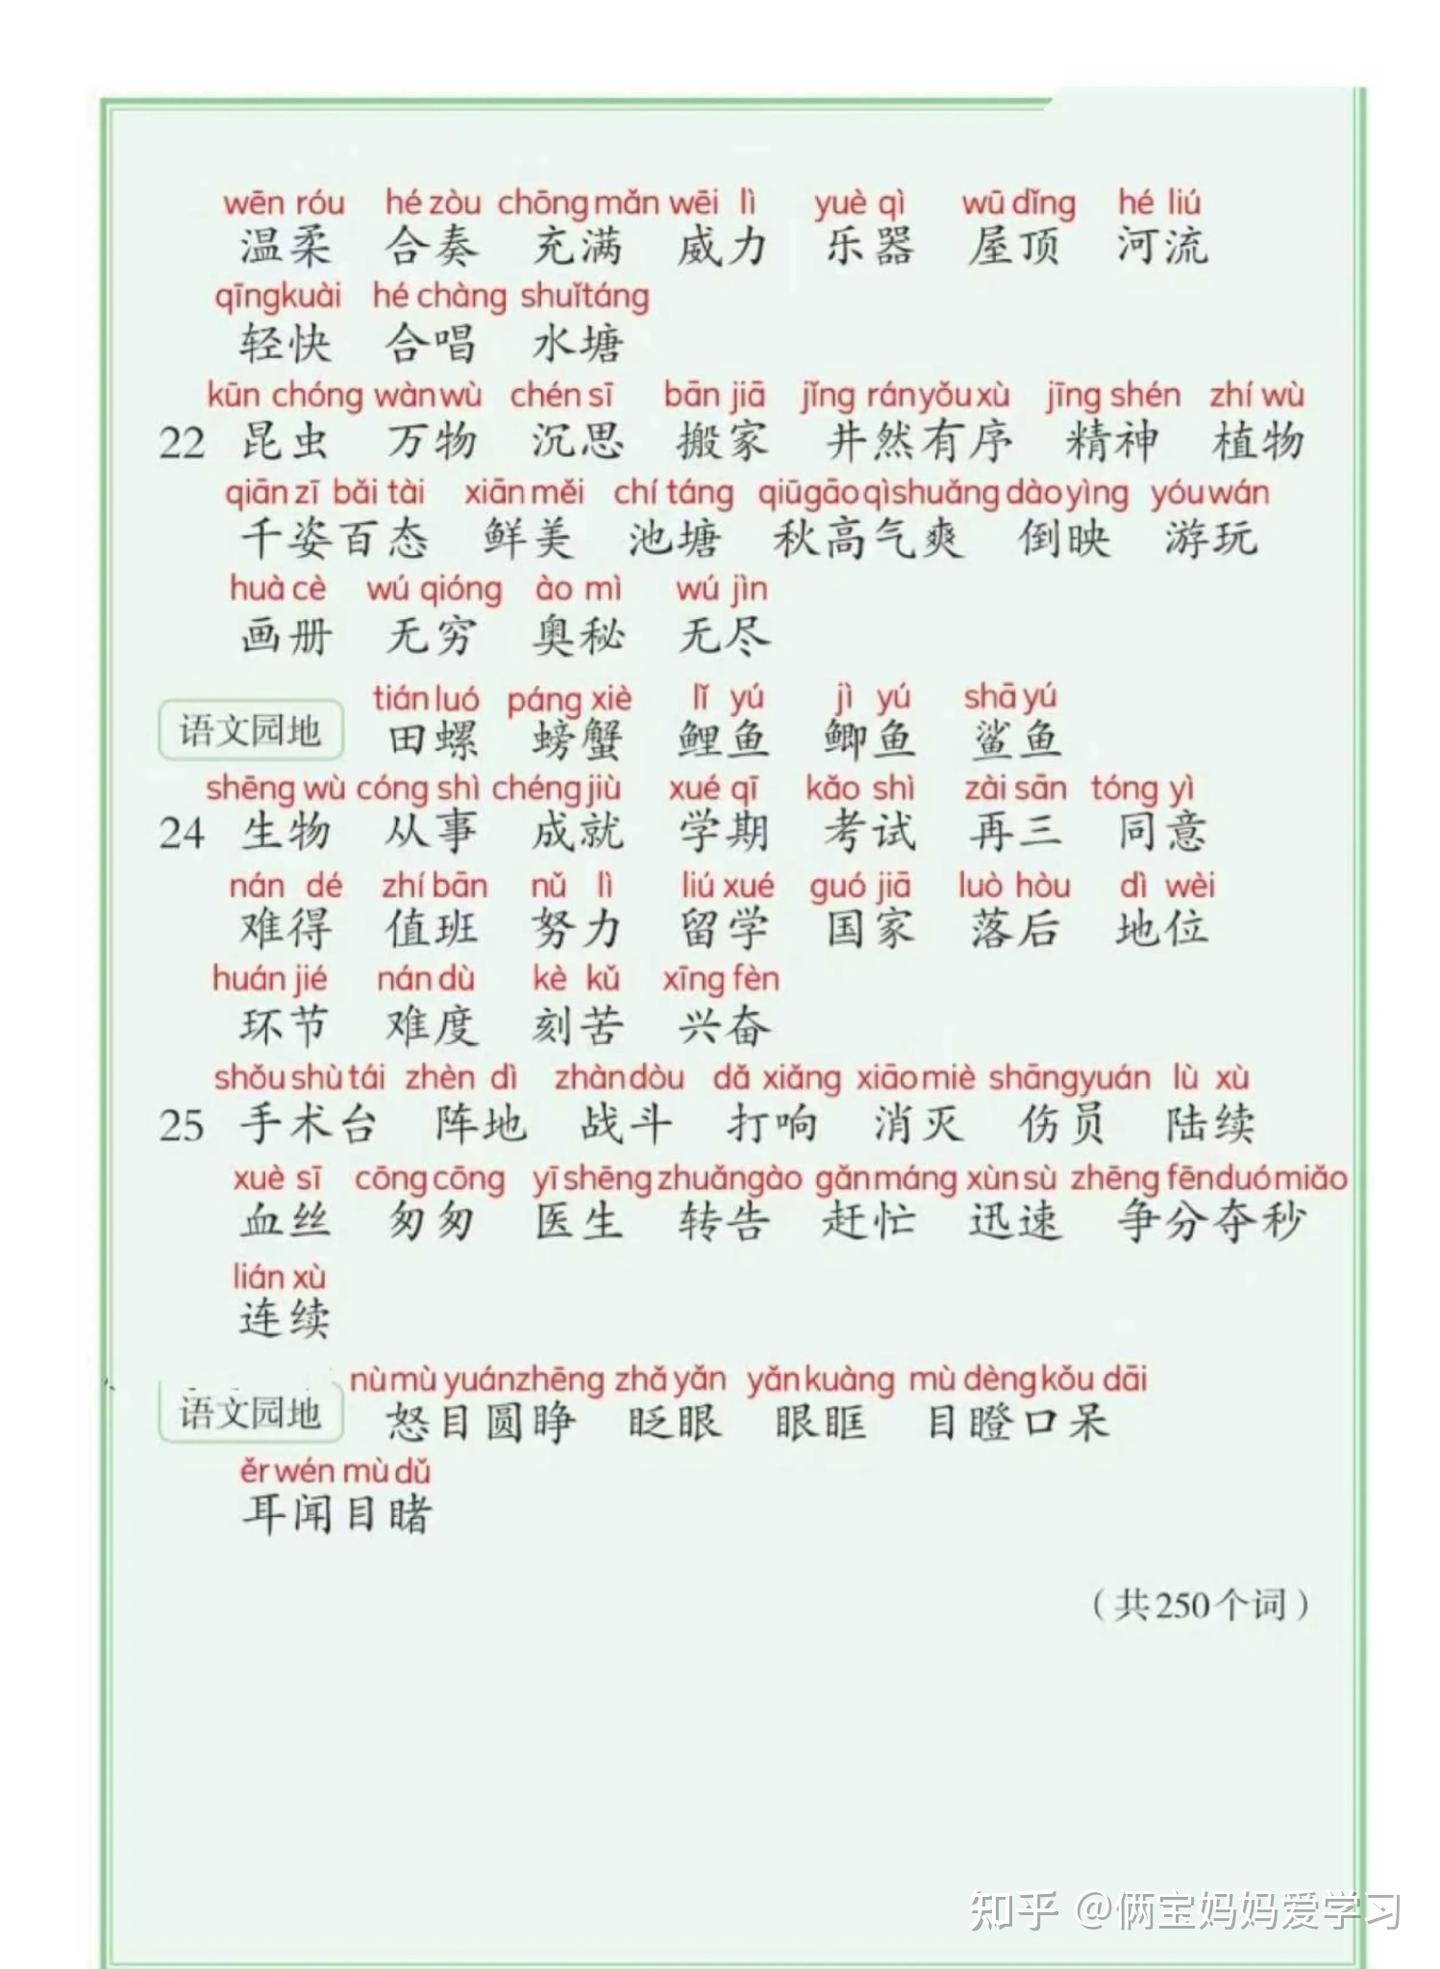 wēn róu hé zòu chōng mǎn wēi lì yuè qì wū dǐng hé liú
温柔 合奏 充满 威力 乐器 屋顶 河流
qīng kuài hé chàng shuǐ táng
轻快 合唱 水塘
kūn chóng wàn wù chén sī bān jiā jǐng rán yǒu xù jīng shén zhí wù
22 昆虫 万物 沉思 搬家 井然有序 精神 植物
qiān zī bǎi tài xiān měi chí táng qiū gāo qì shuǎng dào yìng yóu wán
千姿百态 鲜美 池塘 秋高气爽 倒映 游玩
huà cè wú qióng ào mì wú jìn
画册 无穷 奥秘 无尽
tián luó páng xiè lǐ yú jì yú shā yú
语文园地 田螺 螃蟹 鲤鱼 鲫鱼 鲨鱼
shēng wù cóng shì chéng jiù xué qī kǎo shì zài sān tóng yì
24 生物 从事 成就 学期 考试 再三 同意
nán dé zhí bān nǔ lì liú xué guó jiā luò hòu dì wèi
难得 值班 努力 留学 国家 落后 地位
huán jié nán dù kè kǔ xīng fèn
环节 难度 刻苦 兴奋
shǒu shù tái zhèn dì zhàn dòu dǎ xiǎng xiāo miè shāng yuán lù xù
25 手术台 阵地 战斗 打响 消灭 伤员 陆续
xuè sī cōng cōng yī shēng zhuǎn gào gǎn máng xùn sù zhēng fēn duó miǎo
血丝 匆匆 医生 转告 赶忙 迅速 争分夺秒
lián xù
连续
nù mù yuán zhēng zhǎ yǎn yǎn kuàng mù dèng kǒu dāi
语文园地 怒目圆睁 眨眼 眼眶 目瞪口呆
ěr wén mù dǔ
耳闻目睹
（共250个词）
知乎 @俩宝妈妈爱学习